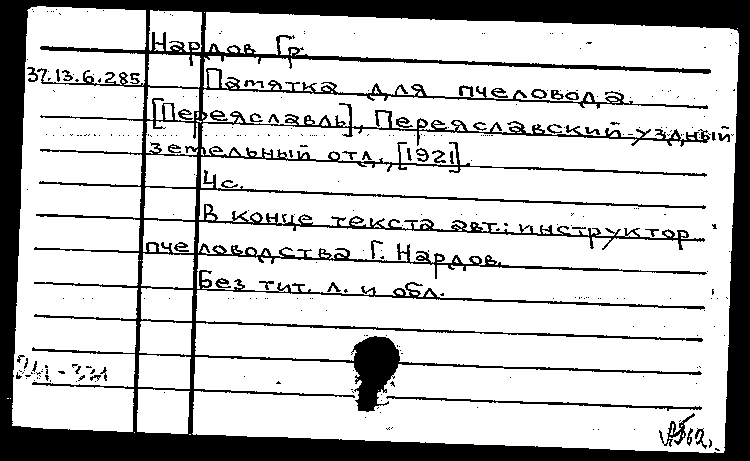 Нардов, Гр.
37.13.6.285. Памятка для пчеловода.
[Переяславль], Переяславский уздный
земельный отд., [1921].
4 с.
В конце текста авт.: инструктор
пчеловодства Г. Нардов.
Без тит. л. и обл.